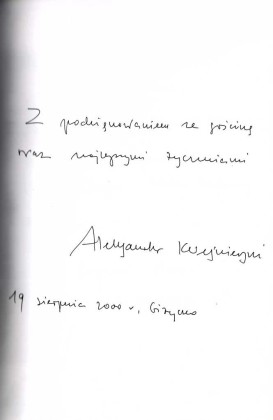 Z podziękowaniem za gościnę
oraz najlepszymi życzeniami
Aleksander Kwaśniewski
19 sierpnia 2000 r., Giżycko